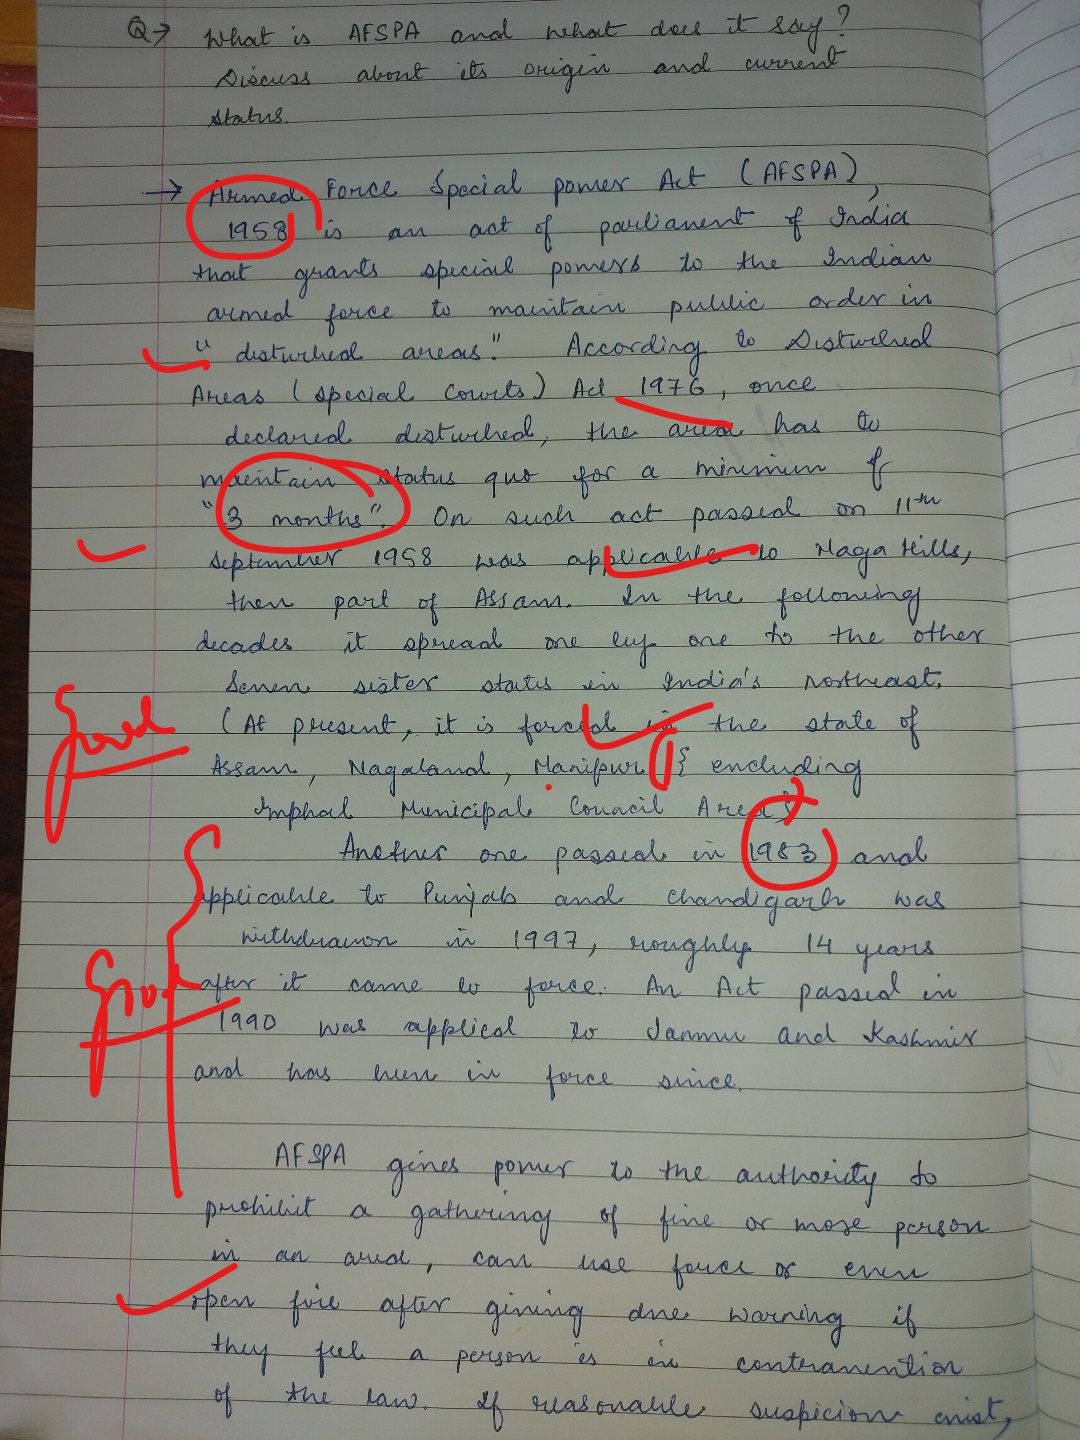 Q→ What is AFSPA and what does it say?
Discuss about its origin and current
status.
→ Armed Force Special power Act (AFSPA),
1958 is an act of parliament of India
that grants special powers to the Indian
armed force to maintain public order in
"disturbed areas." According to Disturbed
Areas (Special Courts) Act 1976, once
declared disturbed, the area has to
maintain status quo for a minimum of
"3 months". On such act passed on 11th
September 1958 was applicable to Naga Hills,
then part of Assam. In the following
decades it spread one by one to the other
Seven sister states in India's northeast.
(At present, it is forced in the state of
Good
Assam, Nagaland, Manipur { excluding
Imphal Municipal Council Area }
Another one passed in 1983 and
applicable to Punjab and Chandigarh was
withdrawn in 1997, roughly 14 years
Good
after it came to force. An Act passed in
1990 was applied to Jammu and Kashmir
and has been in force since.
AFSPA gives power to the authority to
prohibit a gathering of five or more person
in an area, can use force or even
open fire after giving due warning if
they feel a person is in contravention
of the law. If reasonable suspicion exist,